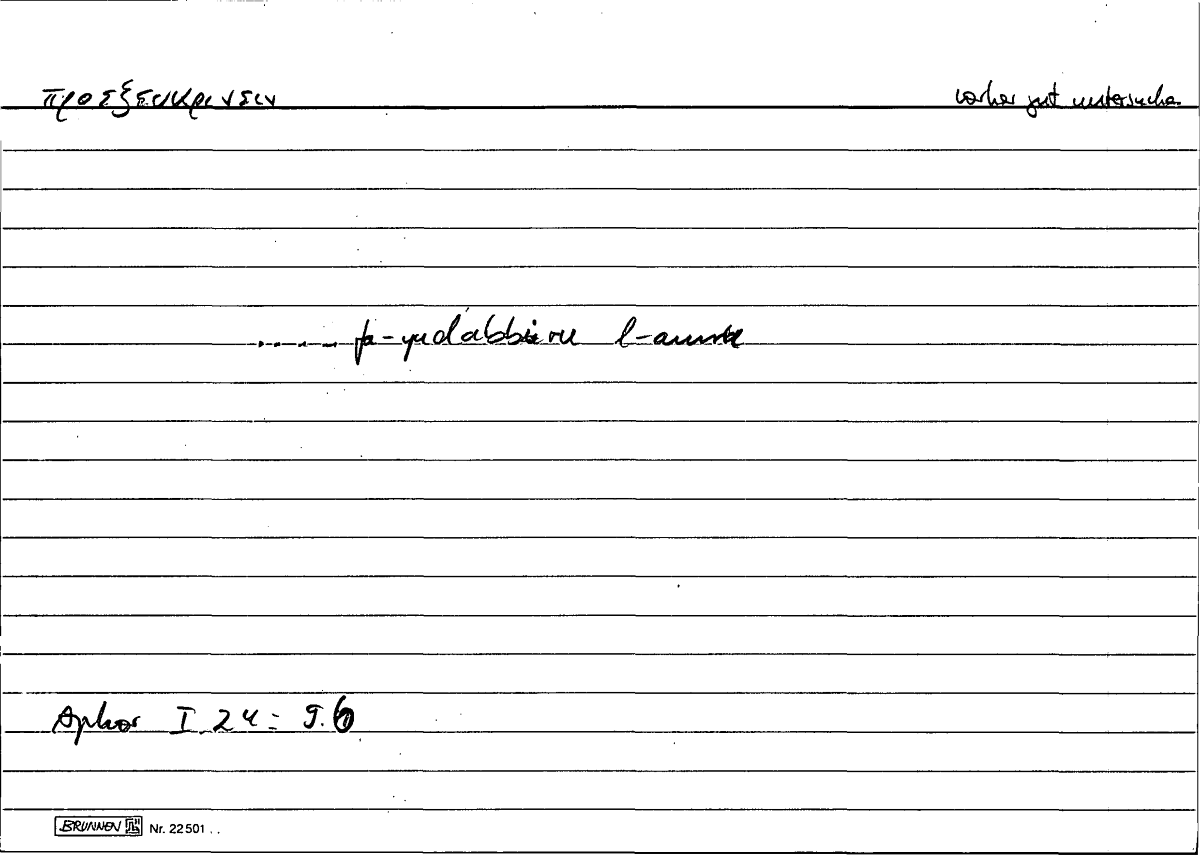 προεξευκρινειν vorher gut untersuchen
..... fa-yudabbiru l-amra
Aphor I. 24 = 9.6
BRUNNEN Nr. 22 501 ..